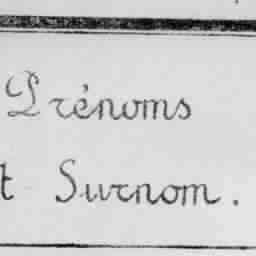 Prénoms
t Surnom.